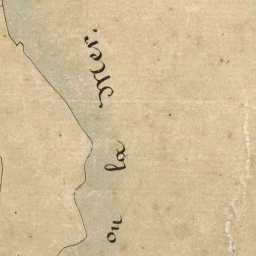 ou la Mer.